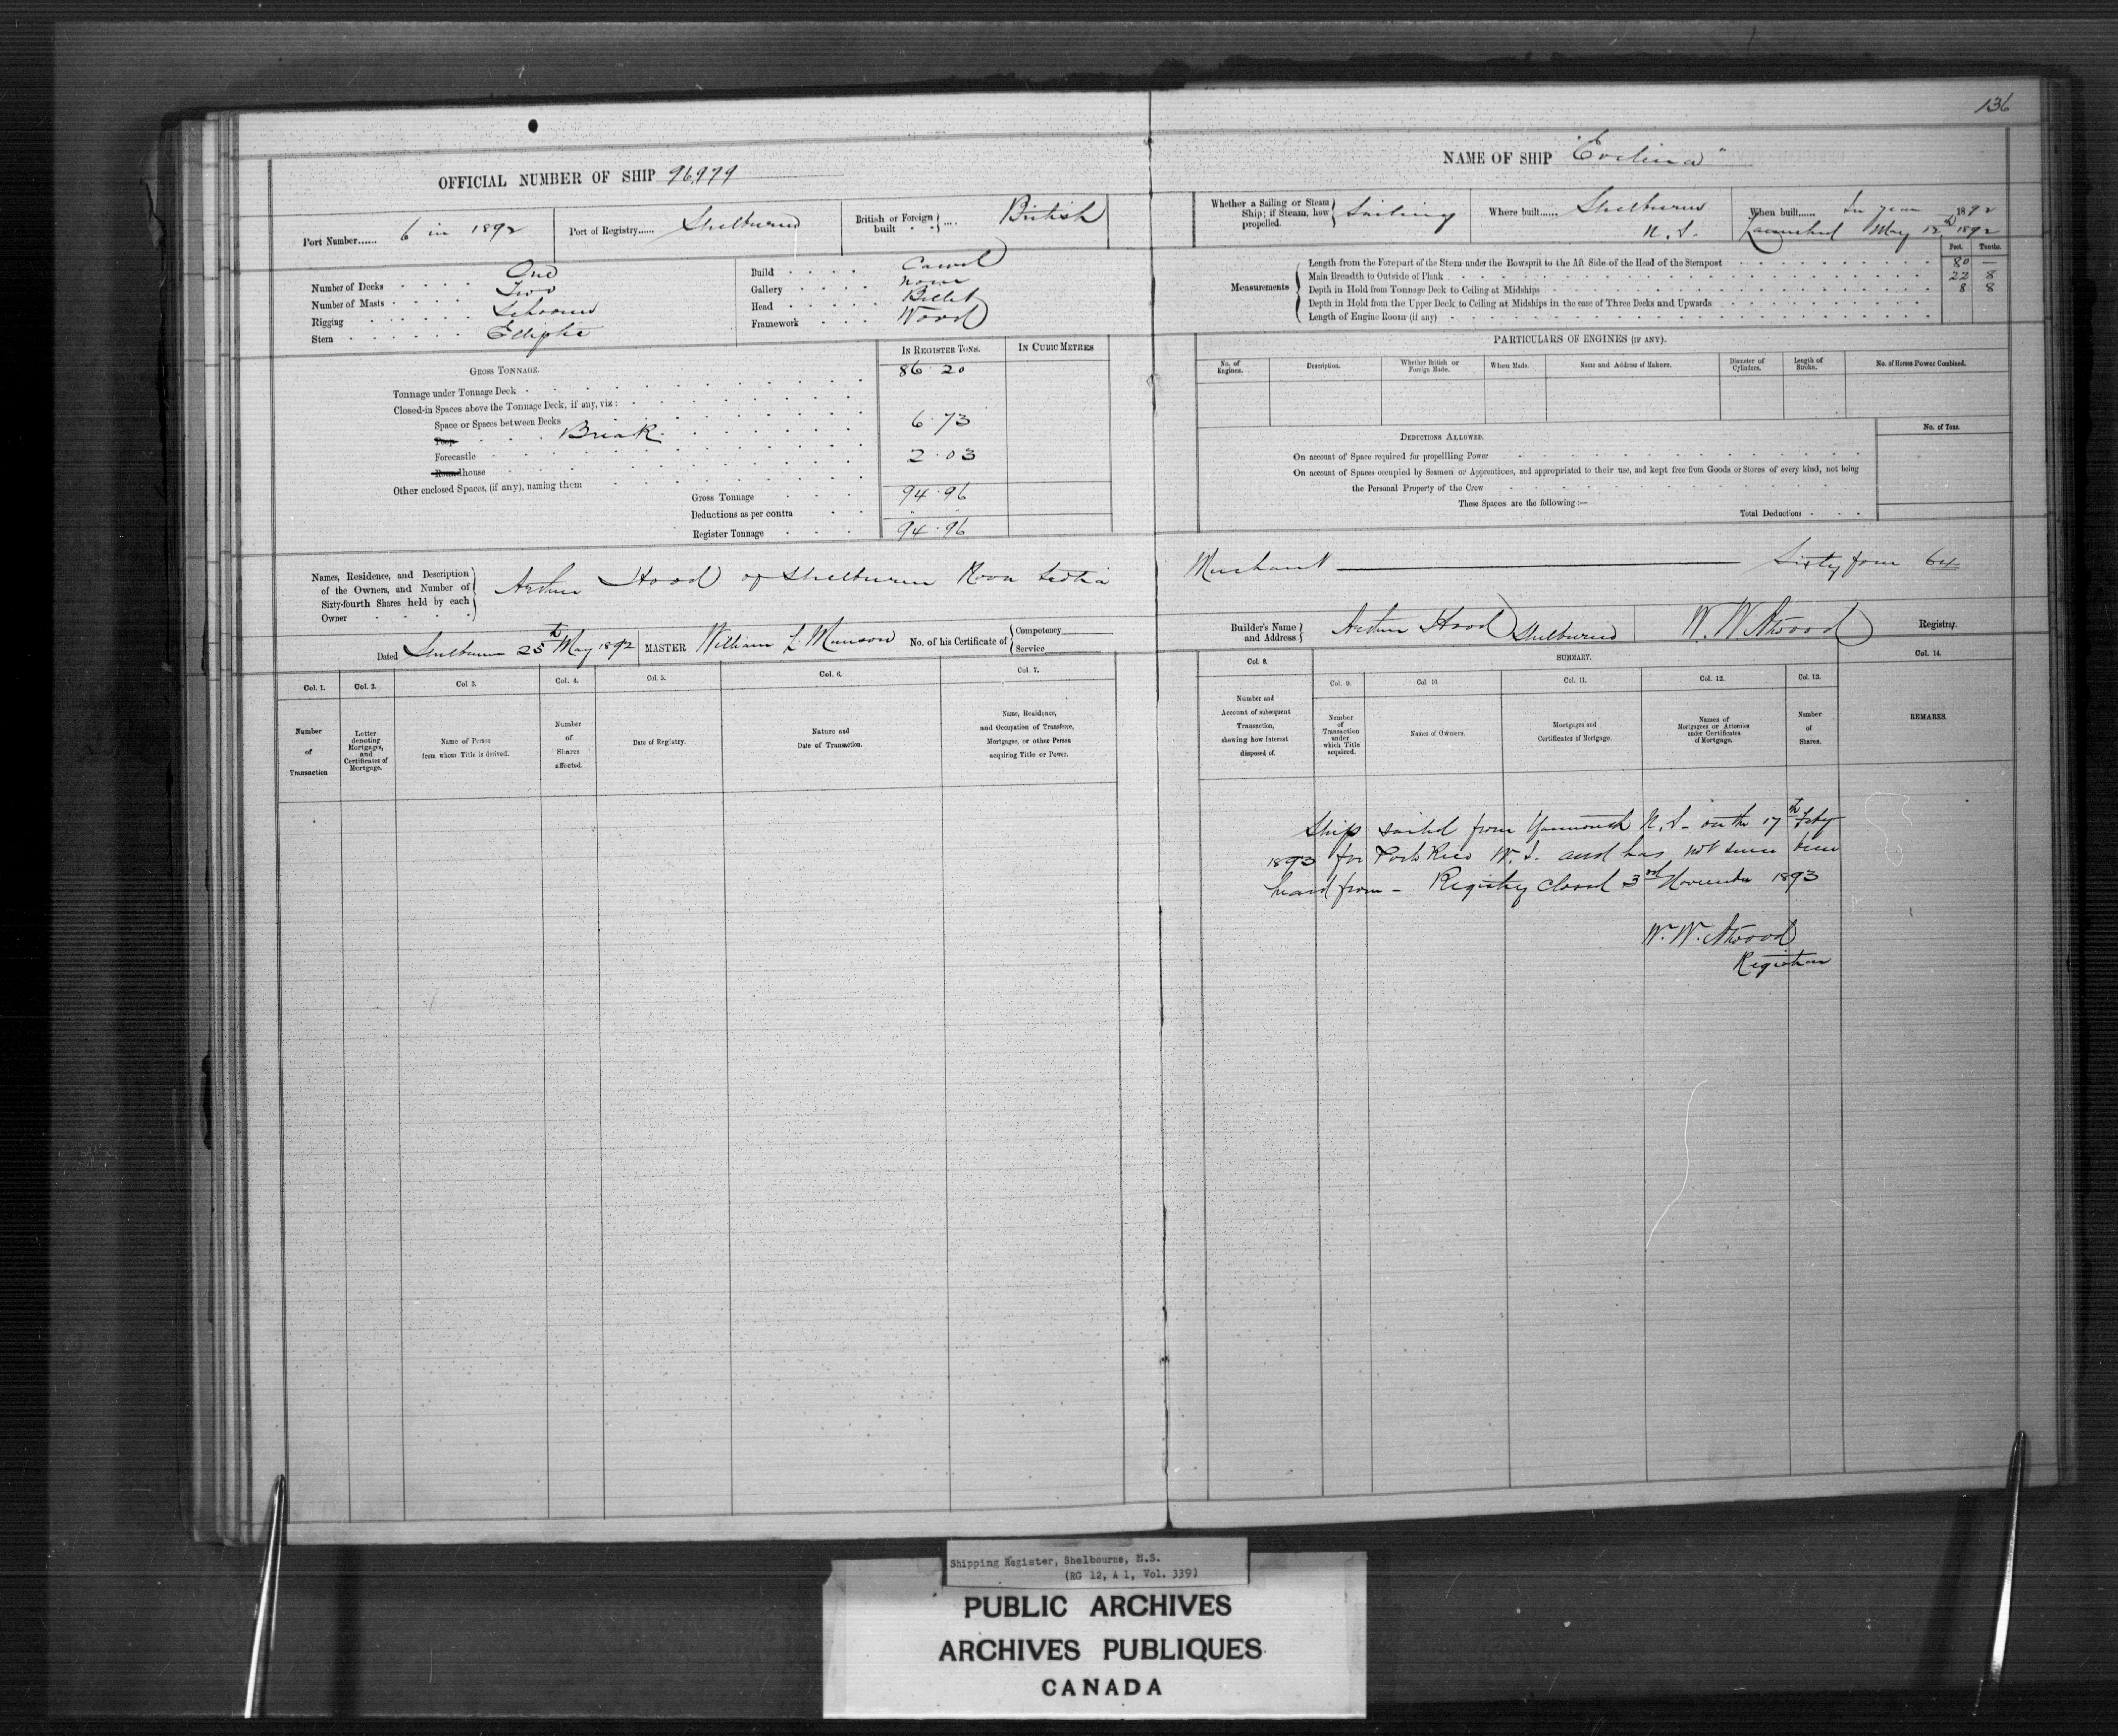 136
OFFICIAL NUMBER OF SHIP 96979
NAME OF SHIP "Evelina"
Port Number...... 6 in 1892
Port of Registry...... Shelburne
British or Foreign built .... British
Whether a Sailing or Steam Ship; if Steam, how propelled. Sailing
Where built...... Shelburne N.S.
When built...... In year 1892
Launched May 12 1892
Number of Decks One
Number of Masts Two
Rigging Schooner
Stern Elliptic
Build Carvel
Gallery none
Head Billet
Framework Wood
Measurements
Feet. Tenths.
Length from the Forepart of the Stem under the Bowsprit to the Aft Side of the Head of the Sternpost 80 —
Main Breadth to Outside of Plank 22 8
Depth in Hold from Tonnage Deck to Ceiling at Midships 8 8
Depth in Hold from the Upper Deck to Ceiling at Midships in the case of Three Decks and Upwards
Length of Engine Room (if any)
GROSS TONNAGE.
IN REGISTER TONS.
IN CUBIC METRES
Tonnage under Tonnage Deck 86.20
Closed-in Spaces above the Tonnage Deck, if any, viz:
Space or Spaces between Decks
Poop Break 6.73
Forecastle 2.03
Roundhouse
Other enclosed Spaces, (if any), naming them
Gross Tonnage 94.96
Deductions as per contra
Register Tonnage 94.96
PARTICULARS OF ENGINES (IF ANY).
No. of Engines.
Description.
Whether British or Foreign Made.
When Made.
Name and Address of Makers.
Diameter of Cylinders.
Length of Stroke.
No. of Horses Power Combined.
DEDUCTIONS ALLOWED.
No. of Tons.
On account of Space required for propellling Power
On account of Spaces occupied by Seamen or Apprentices, and appropriated to their use, and kept free from Goods or Stores of every kind, not being
the Personal Property of the Crew
These Spaces are the following:—
Total Deductions
Names, Residence, and Description of the Owners, and Number of Sixty-fourth Shares held by each Owner
Arthur Hood of Shelburne Nova Scotia Merchant Sixty four 64
Dated Shelburne 25th May 1892
MASTER William L. Munson
No. of his Certificate of Competency
Service
Builder's Name and Address Arthur Hood Shelburne
W. W. Atwood Registrar.
SUMMARY.
Col. 1.
Number of Transaction
Col. 2.
Letter denoting Mortgages, and Certificates of Mortgage.
Col 3.
Name of Person from whom Title is derived.
Col. 4.
Number of Shares affected.
Col. 5.
Date of Registry.
Col. 6.
Nature and Date of Transaction.
Col. 7.
Name, Residence, and Occupation of Transferee, Mortgagee, or other Person acquiring Title or Power.
Col. 8.
Number and Account of subsequent Transaction, showing how Interest disposed of.
Col. 9.
Number of Transaction under which Title acquired.
Col. 10.
Names of Owners.
Col. 11.
Mortgages and Certificates of Mortgage.
Col. 12.
Names of Mortgagees or Attornies under Certificates of Mortgage.
Col. 13.
Number of Shares.
Col. 14.
REMARKS.
Ship sailed from Yarmouth N.S. on the 17th Feby
1893 for Porto Rico W.I. and has not since been
heard from - Registry closed 3rd November 1893
W. W. Atwood
Registrar
Shipping Register, Shelbourne, N.S.
(RG 12, A 1, Vol. 339)
PUBLIC ARCHIVES
ARCHIVES PUBLIQUES
CANADA